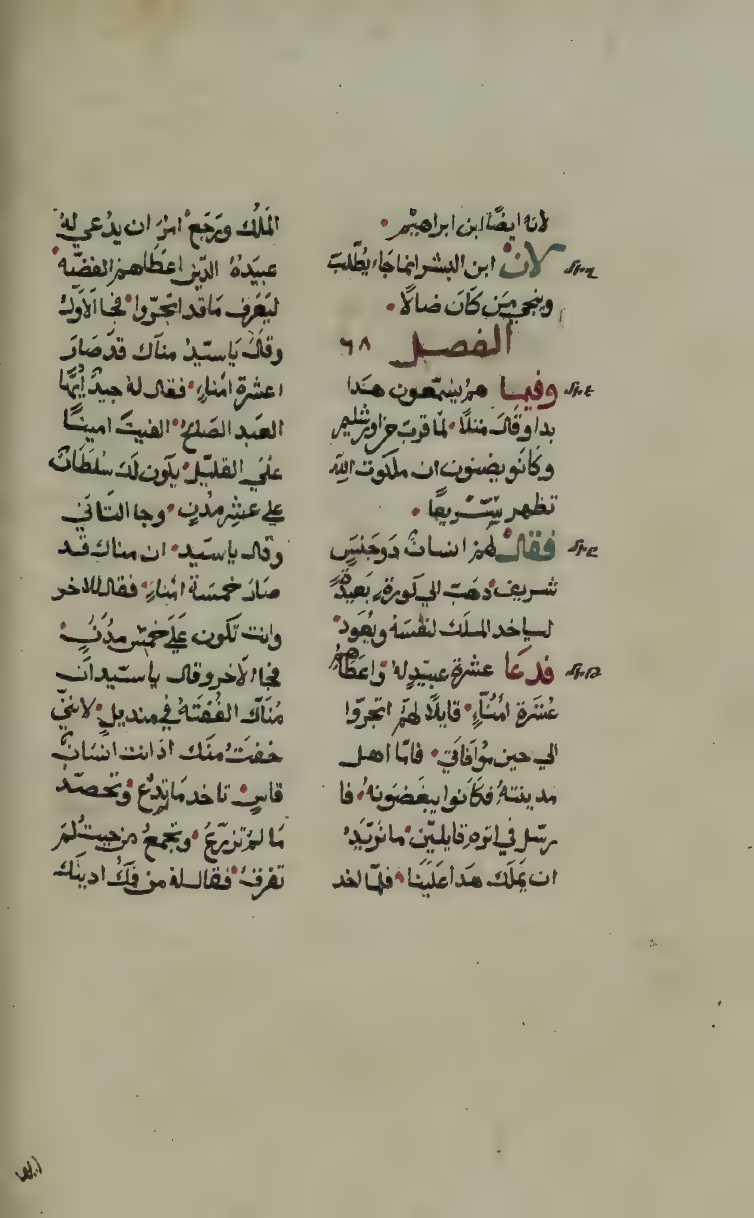 لانه ايضًا ابن ابراهيم.
لان ابن البشر انما جاء يطلب
وينجي من كان ضالًا.
الفصل ٦٨
وفيما هم يسمعون هذا
بدا وقال مثلًا. لما قرب من اورشليم
وكانو يضنون ان ملكوت الله
تظهر سريعًا.
فقال لهم انسان دو جنس
شريف دهب الي كورة بعيدة
لياخد الملك لنفسه ويعود.
فدعا عشرة عبيد له واعطاهم
عشرة امناء. قايلًا لهم اتجروا
الي حين موافاتي. فاما اهل
مدينته فكانوا يبغضونه. فا
رسل في اتره قايلين. ما نريد
ان يملك هدا علينا. فلما اخد
الملك ورجع امر ان يدعي له
عبيده الدين اعطاهم الفضه
ليعرف ما قد اتجروا. فجا الاول
وقال يا سيد مناك قد صار
عشرة امناء. فقال له جيد ايها
العبد الصالح. الفيت امينا
علي القليل. يكون لك سلطان
علي عشر مدن. وجا التاني
وقال يا سيد. ان مناك قد
صار خمسة امناء. فقال للاخر
وانت تكون علي خمس مدن.
فجا الاخر وقال يا سيد ان
مناك الفقته في منديل. لانني
خفت منك اد انت انسان
قاس. تاخد ما لم تدع وتحصد
ما لم تزرع. وتجمع من حيت لم
تفرق. فقال له من فك ادينك